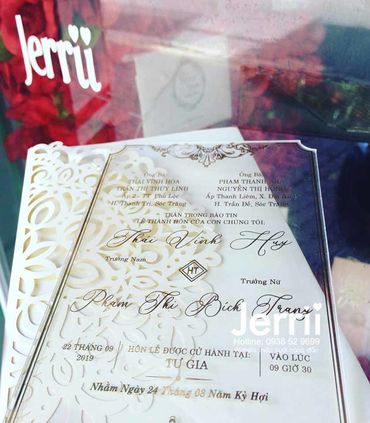 Jerrii
Ông Bà
THÁI VĨNH HÒA
TRẦN THỊ THÙY LINH
Ấp 2 - TT Phú Lộc
H. Thạnh Trị, Sóc Trăng
Ông Bà
PHẠM THANH
NGUYỄN THỊ HỒNG
Ấp Thanh Liêm, X.
H. Trần Đề, Sóc Trăng
TRÂN TRỌNG BÁO TIN
LỄ THÀNH HÔN CỦA CON CHÚNG TÔI:
Thái Vĩnh Huy
Trưởng Nam
HT
Trưởng Nữ
Phạm Thị Bích Trang
Jerrii
Hotline: 0938 52 9699
22 THÁNG 09
2019
HÔN LỄ ĐƯỢC CỬ HÀNH TẠI:
TƯ GIA
VÀO LÚC
09 GIỜ 30
Nhằm Ngày 24 Tháng 08 Năm Kỷ Hợi